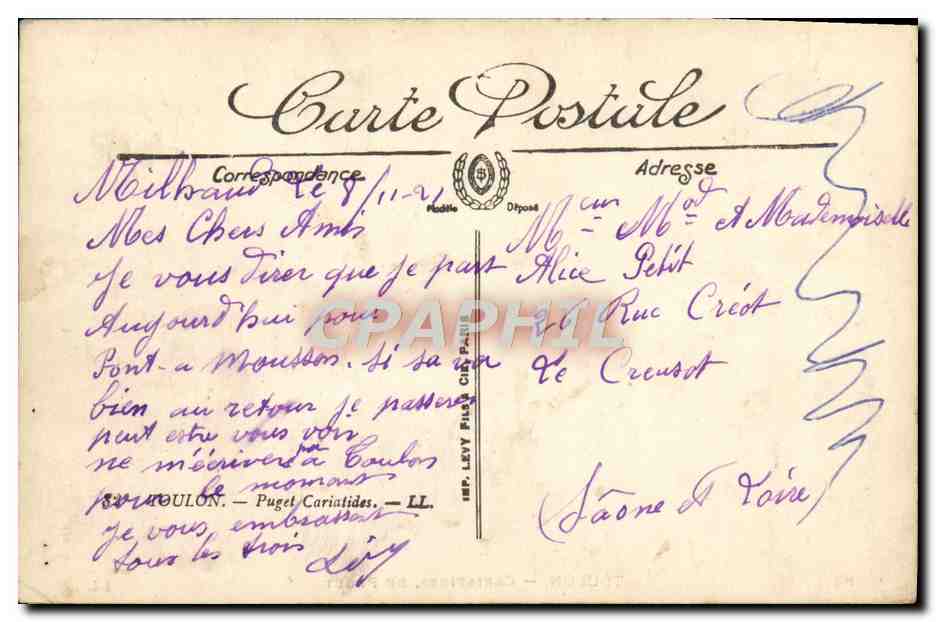 Carte Postale
Correspondance
Adresse
Modèle Déposé
Milhaud le 8/11-21
Mes Chers Amis
Je vous direr que je part
Aujourd'hui pour
Pont-a Mousson. si sa va
bien au retour je passerer
peut estre vous voir
ne m'écriver pa a Toulon
pour le moment
TOULON. — Puget Cariatides. — LL.
je vous embrassent
tous les trois
IMP. LEVY FILS & CIE, PARIS
Meur Mad et Mademoiselle
Alice Petit
26 Rue Créot
Le Creusot
Saône et Loire
CPAPHIL
TOULON - CARIATIDES, DE PUGET
LL